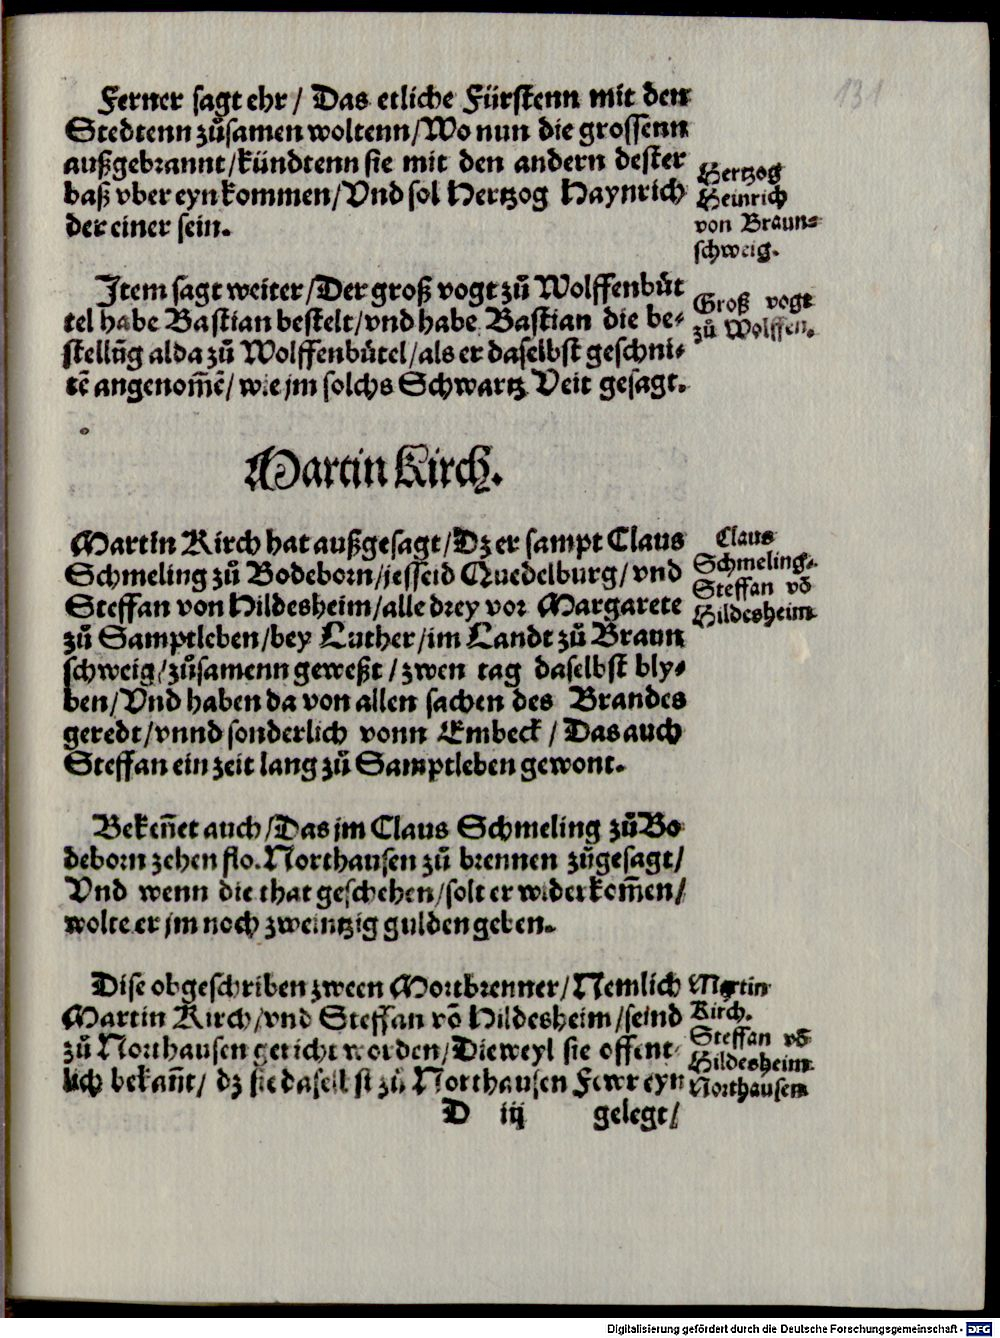 131
Ferner sagt ehr / Das etliche Fürstenn mit den
Stedtenn zůsamen woltenn / Wo nun die grossenn
außgebrannt / kündtenn sie mit den andern dester
baß vber eyn kommen / Vnd sol Hertzog Haynrich
der einer sein.
Hertzog
Heinrich
von Braun⸗
schweig.
Item sagt weiter / Der groß vogt zů Wolffenbüt
tel habe Bastian bestelt / vnd habe Bastian die be⸗
stellũg alda zů Wolffenbütel / als er daselbst geschni⸗
tẽ angenom̃ẽ / wie jm solchs Schwartz Veit gesagt.
Groß vogt
zů Wolffen.
Martin Kirch.
Martin Kirch hat außgesagt / Dz er sampt Claus
Schmeling zů Bodeborn / jesseid Quedelburg / vnd
Steffan von Hildesheim / alle drey vor Margarete
zů Samptleben / bey Luther / im Landt zů Braun
schweig / zůsamenn geweßt / zwen tag daselbst bly⸗
ben / Vnd haben da von allen sachen des Brandes
geredt / vnnd sonderlich vonn Embeck / Das auch
Steffan ein zeit lang zů Samptleben gewont.
Claus
Schmeling.
Steffan võ
Hildesheim
Beken̄et auch / Das jm Claus Schmeling zů Bo
deborn zehen flo. Northausen zů brennen zůgesagt /
Vnd wenn die that geschehen / solt er widerkom̃en /
wolte er jm noch zweintzig gulden geben.
Dise obgeschriben zween Mortbrenner / Nemlich
Martin Kirch / vnd Steffan võ Hildesheim / seind
zů Northausen gericht worden / Dieweyl sie offent
lich bekan̄t / dz sie daselbst zů Northausen Fewr eyn
Martin
Kirch.
Steffan võ
Hildesheim
Northausen
D iij gelegt /
Digitalisierung gefördert durch die Deutsche Forschungsgemeinschaft - DFG